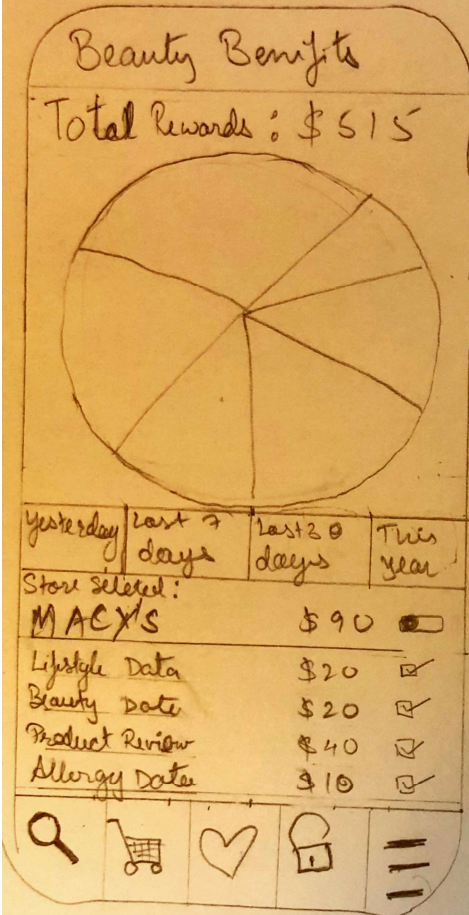 Beauty Benifits
Total Rewards : $515
Yesterday Last 7 days Last 30 days This year
Store Seleted:
MACY'S $90
Lifestyle Data $20
Beauty Data $20
Product Review $40
Allergy Data $10